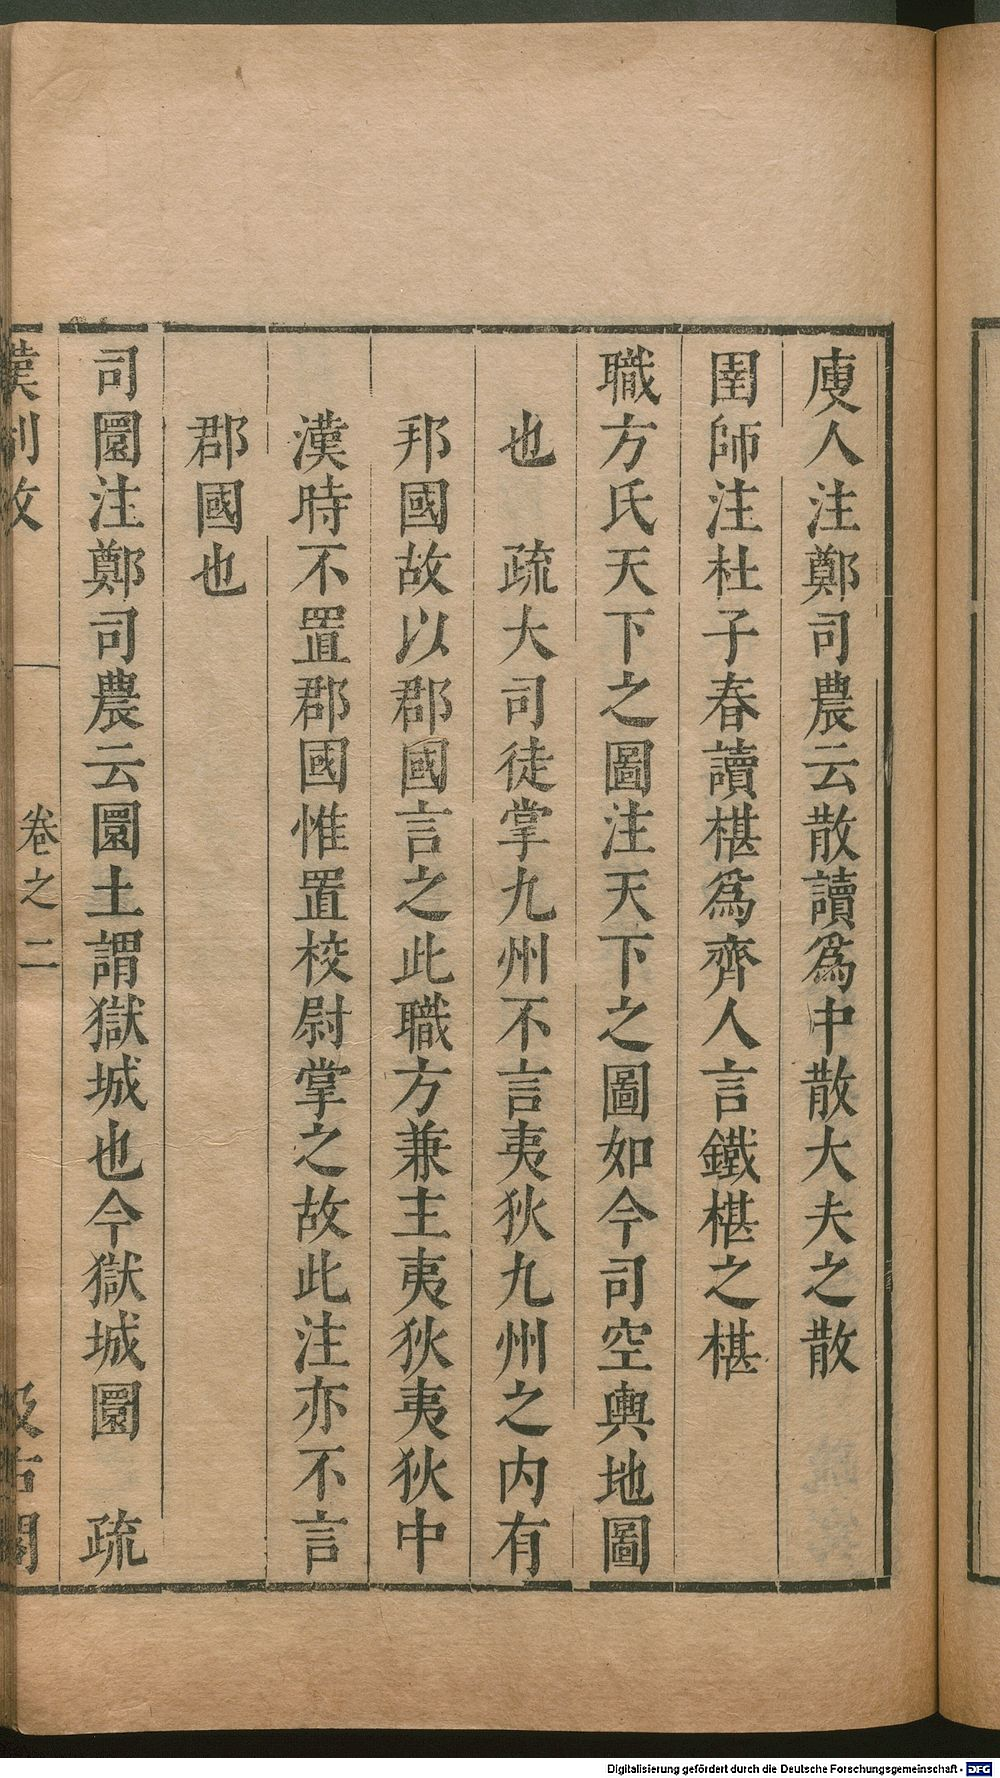 廋人注鄭司農云散讀爲中散大夫之散
圉師注杜子春讀椹爲齊人言鐵椹之椹
職方氏天下之圖注天下之圖如今司空輿地圖
也　疏大司徒掌九州不言夷狄九州之內有
邦國故以郡國言之此職方兼主夷狄夷狄中
漢時不置郡國惟置校尉掌之故此注亦不言
郡國也
司圜注鄭司農云圜土謂獄城也今獄城圜　疏
漢制攷
卷之二
汲古閣
Digitalisierung gefördert durch die Deutsche Forschungsgemeinschaft - DFG